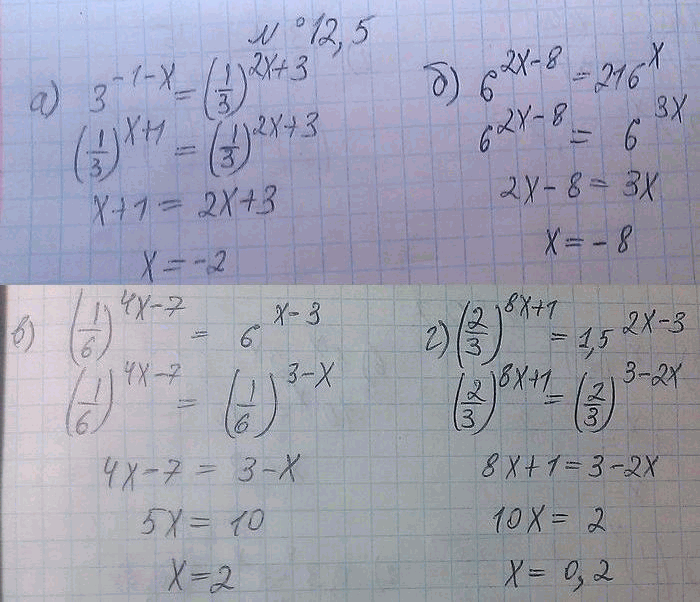 № 12,5
а) 3^{-1-x} = (1/3)^{2x+3}
(1/3)^{x+1} = (1/3)^{2x+3}
x+1 = 2x+3
x = -2
б) 6^{2x-8} = 216^{x}
6^{2x-8} = 6^{3x}
2x-8 = 3x
x = -8
в) (1/6)^{4x-7} = 6^{x-3}
(1/6)^{4x-7} = (1/6)^{3-x}
4x-7 = 3-x
5x = 10
x = 2
г) (2/3)^{8x+1} = 1,5^{2x-3}
(2/3)^{8x+1} = (2/3)^{3-2x}
8x+1 = 3-2x
10x = 2
x = 0,2